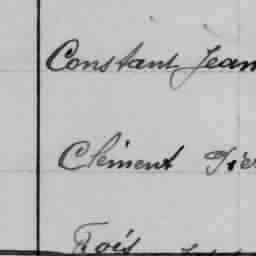 Constant Jean
Clément Pier
Frois